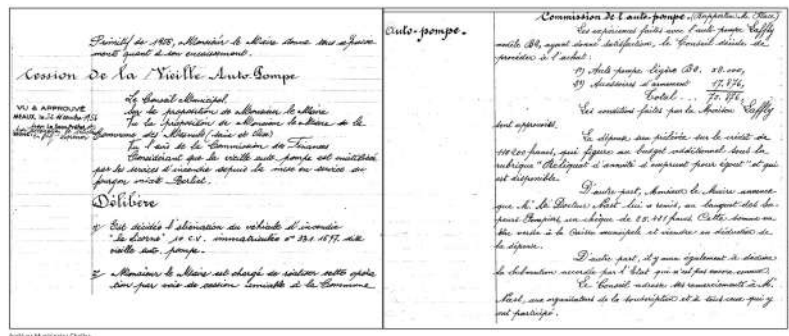 Primitif de 1956, Monsieur le Maire donne tous apaise-
ments quant à son encaissement.
Cession de la Vieille Auto-Pompe
VU & APPROUVÉ
MEAUX, le
Le Conseil Municipal,
Sur la proposition de Monsieur le Maire
Vu la proposition de Monsieur le Maire de la
Commune des
Vu l'avis de la Commission des Finances
Considérant que la vieille auto-pompe est inutilisée
par les services d'incendie depuis la mise en service du
fourgon mixte Berliet.
Délibère
1/ Est décidée l'aliénation du véhicule d'incendie
"la Licorne" 10 C.V. immatriculée n° dite
vieille auto-pompe.
2/ Monsieur le Maire est chargé de réaliser cette opéra-
tion par voie de cession amiable à la Commune
Auto-pompe.
Commission de l'auto-pompe. (Rapporteur M.
Les expériences faites avec l'auto-pompe Laffly
modèle ayant donné satisfaction, le Conseil décide de
procéder à l'achat:
1°) Auto-pompe légère
2°) Accessoires d'armement 17.876,
Total... 70.876,
Les conditions faites par la Maison Laffly
sont approuvées.
La dépense sera prélevée sur le crédit de
110.200 francs, qui figure au budget additionnel sous la
rubrique "Reliquat d'annuité d'emprunt pour égout" et qui
est disponible.
D'autre part, Monsieur le Maire annonce
que M. le Docteur Nast lui a remis, au banquet des Sa-
peurs Pompiers, un chèque de 25.421 francs. Cette somme va
être versée à la Caisse municipale et viendra en déduction de
la dépense.
D'autre part, il y aura également à déduire
la subvention accordée par l'Etat qui n'est pas encore connue.
Le Conseil adresse ses remerciements à M.
Nast, aux organisateurs de la souscription et à tous ceux qui y
ont participé.
Archives Municipales Chelles